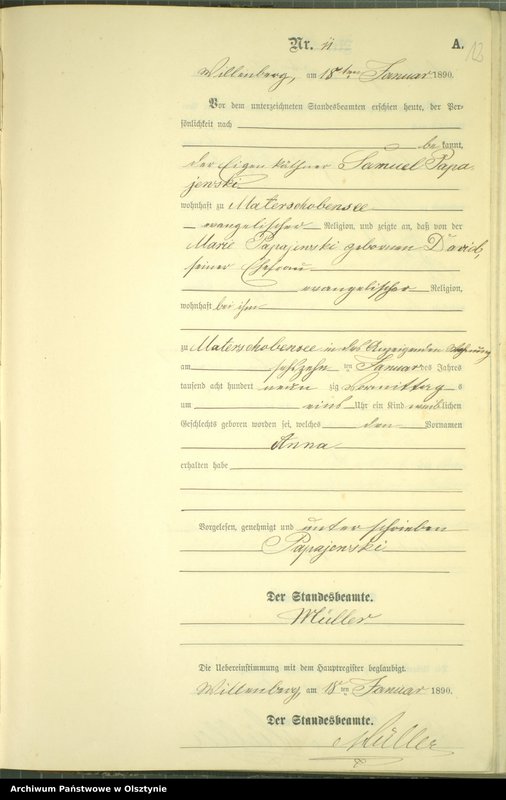 Nr. 11
A.
12
Willenberg, am 18ten Januar 1890.
Vor dem unterzeichneten Standesbeamten erschien heute, der Per-
sönlichkeit nach
be kannt,
der Eigenkäthner Samuel Papa
jewski
wohnhaft zu Materschobensee
evangelischer Religion, und zeigte an, daß von der
Marie Papajewski geborenen David,
seiner Ehefrau
evangelischer Religion,
wohnhaft bei ihm
zu Materschobensee in des Anzeigenden Wohnung
am sechszehn ten Januar des Jahres
tausend acht hundert neun zig Vormittag s
um eins Uhr ein Kind weiblichen
Geschlechts geboren worden sei, welches den Vornamen
Anna
erhalten habe
Vorgelesen, genehmigt und unterschrieben
Papajewski
Der Standesbeamte.
Müller
Die Uebereinstimmung mit dem Hauptregister beglaubigt.
Willenberg, am 18ten Januar 1890.
Der Standesbeamte.
Müller
Archiwum Państwowe w Olsztynie